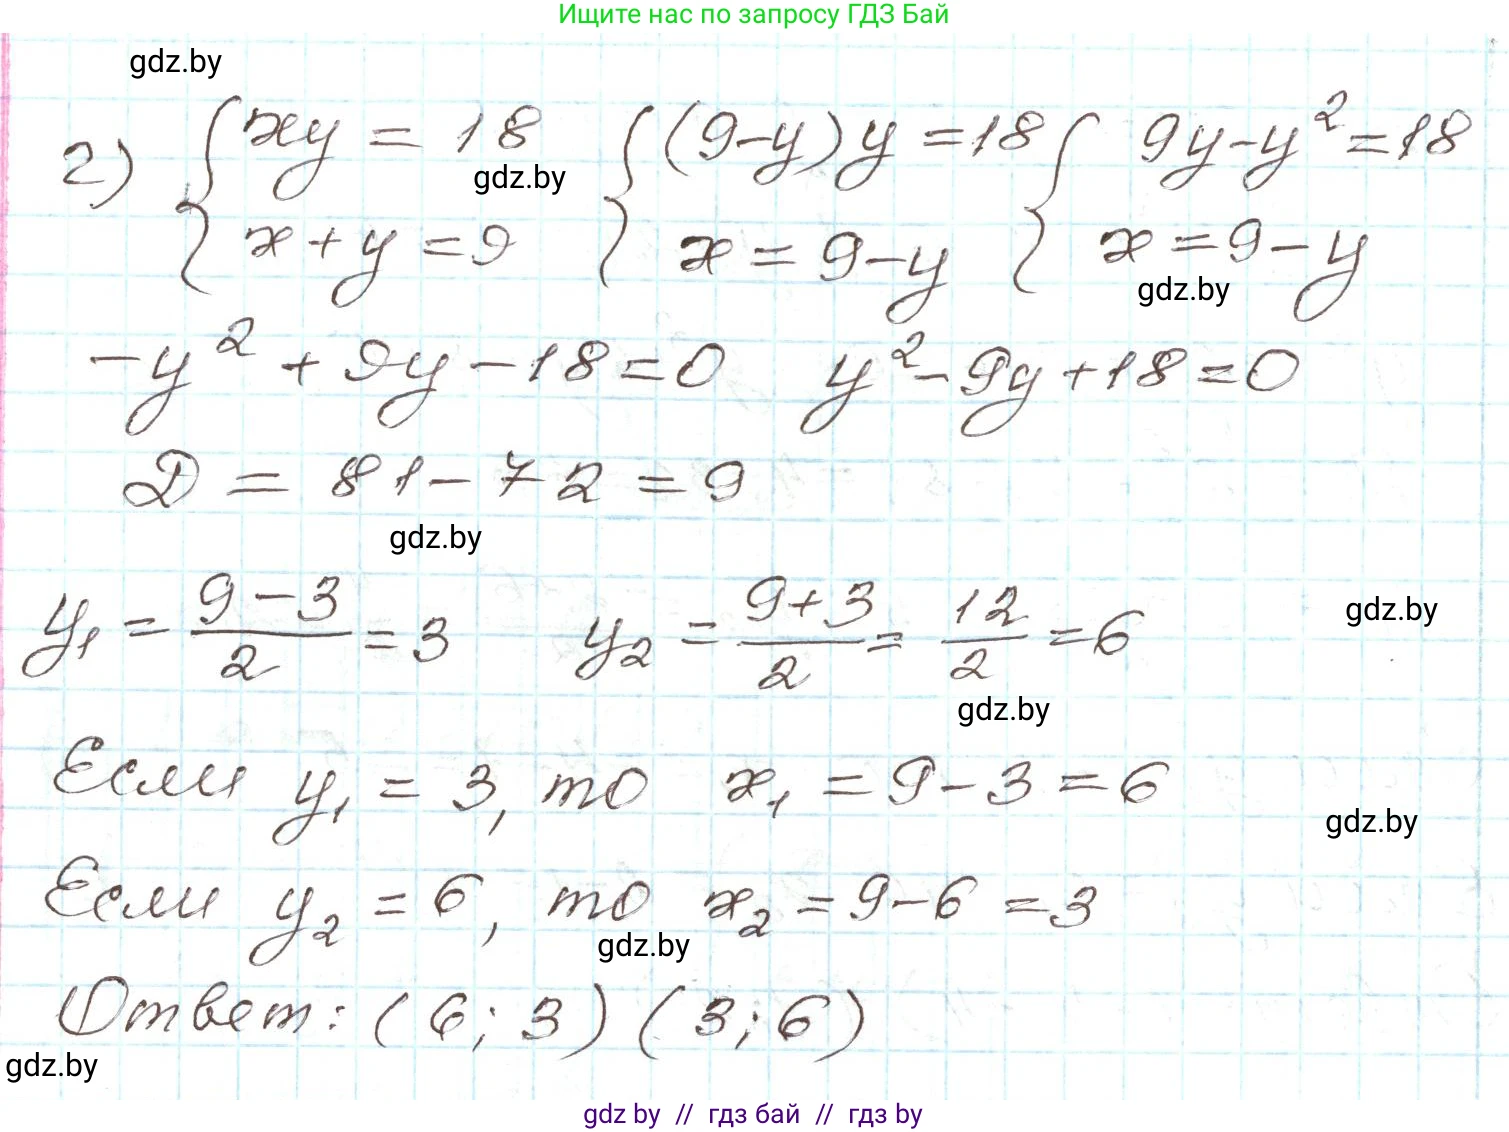 Ищите нас по запросу ГДЗ Бай
gdz.by
2) { xy = 18 { (9-y)y = 18 { 9y-y² = 18
gdz.by
x+y = 9 x = 9-y x = 9-y
gdz.by
-y² + 9y - 18 = 0 y² - 9y + 18 = 0
D = 81 - 72 = 9
gdz.by
y₁ = (9-3)/2 = 3 y₂ = (9+3)/2 = 12/2 = 6
gdz.by
gdz.by
Если y₁ = 3, то x₁ = 9 - 3 = 6
gdz.by
Если y₂ = 6, то x₂ = 9 - 6 = 3
gdz.by
Ответ: (6; 3) (3; 6)
gdz.by
gdz by // гдз бай // гдз by